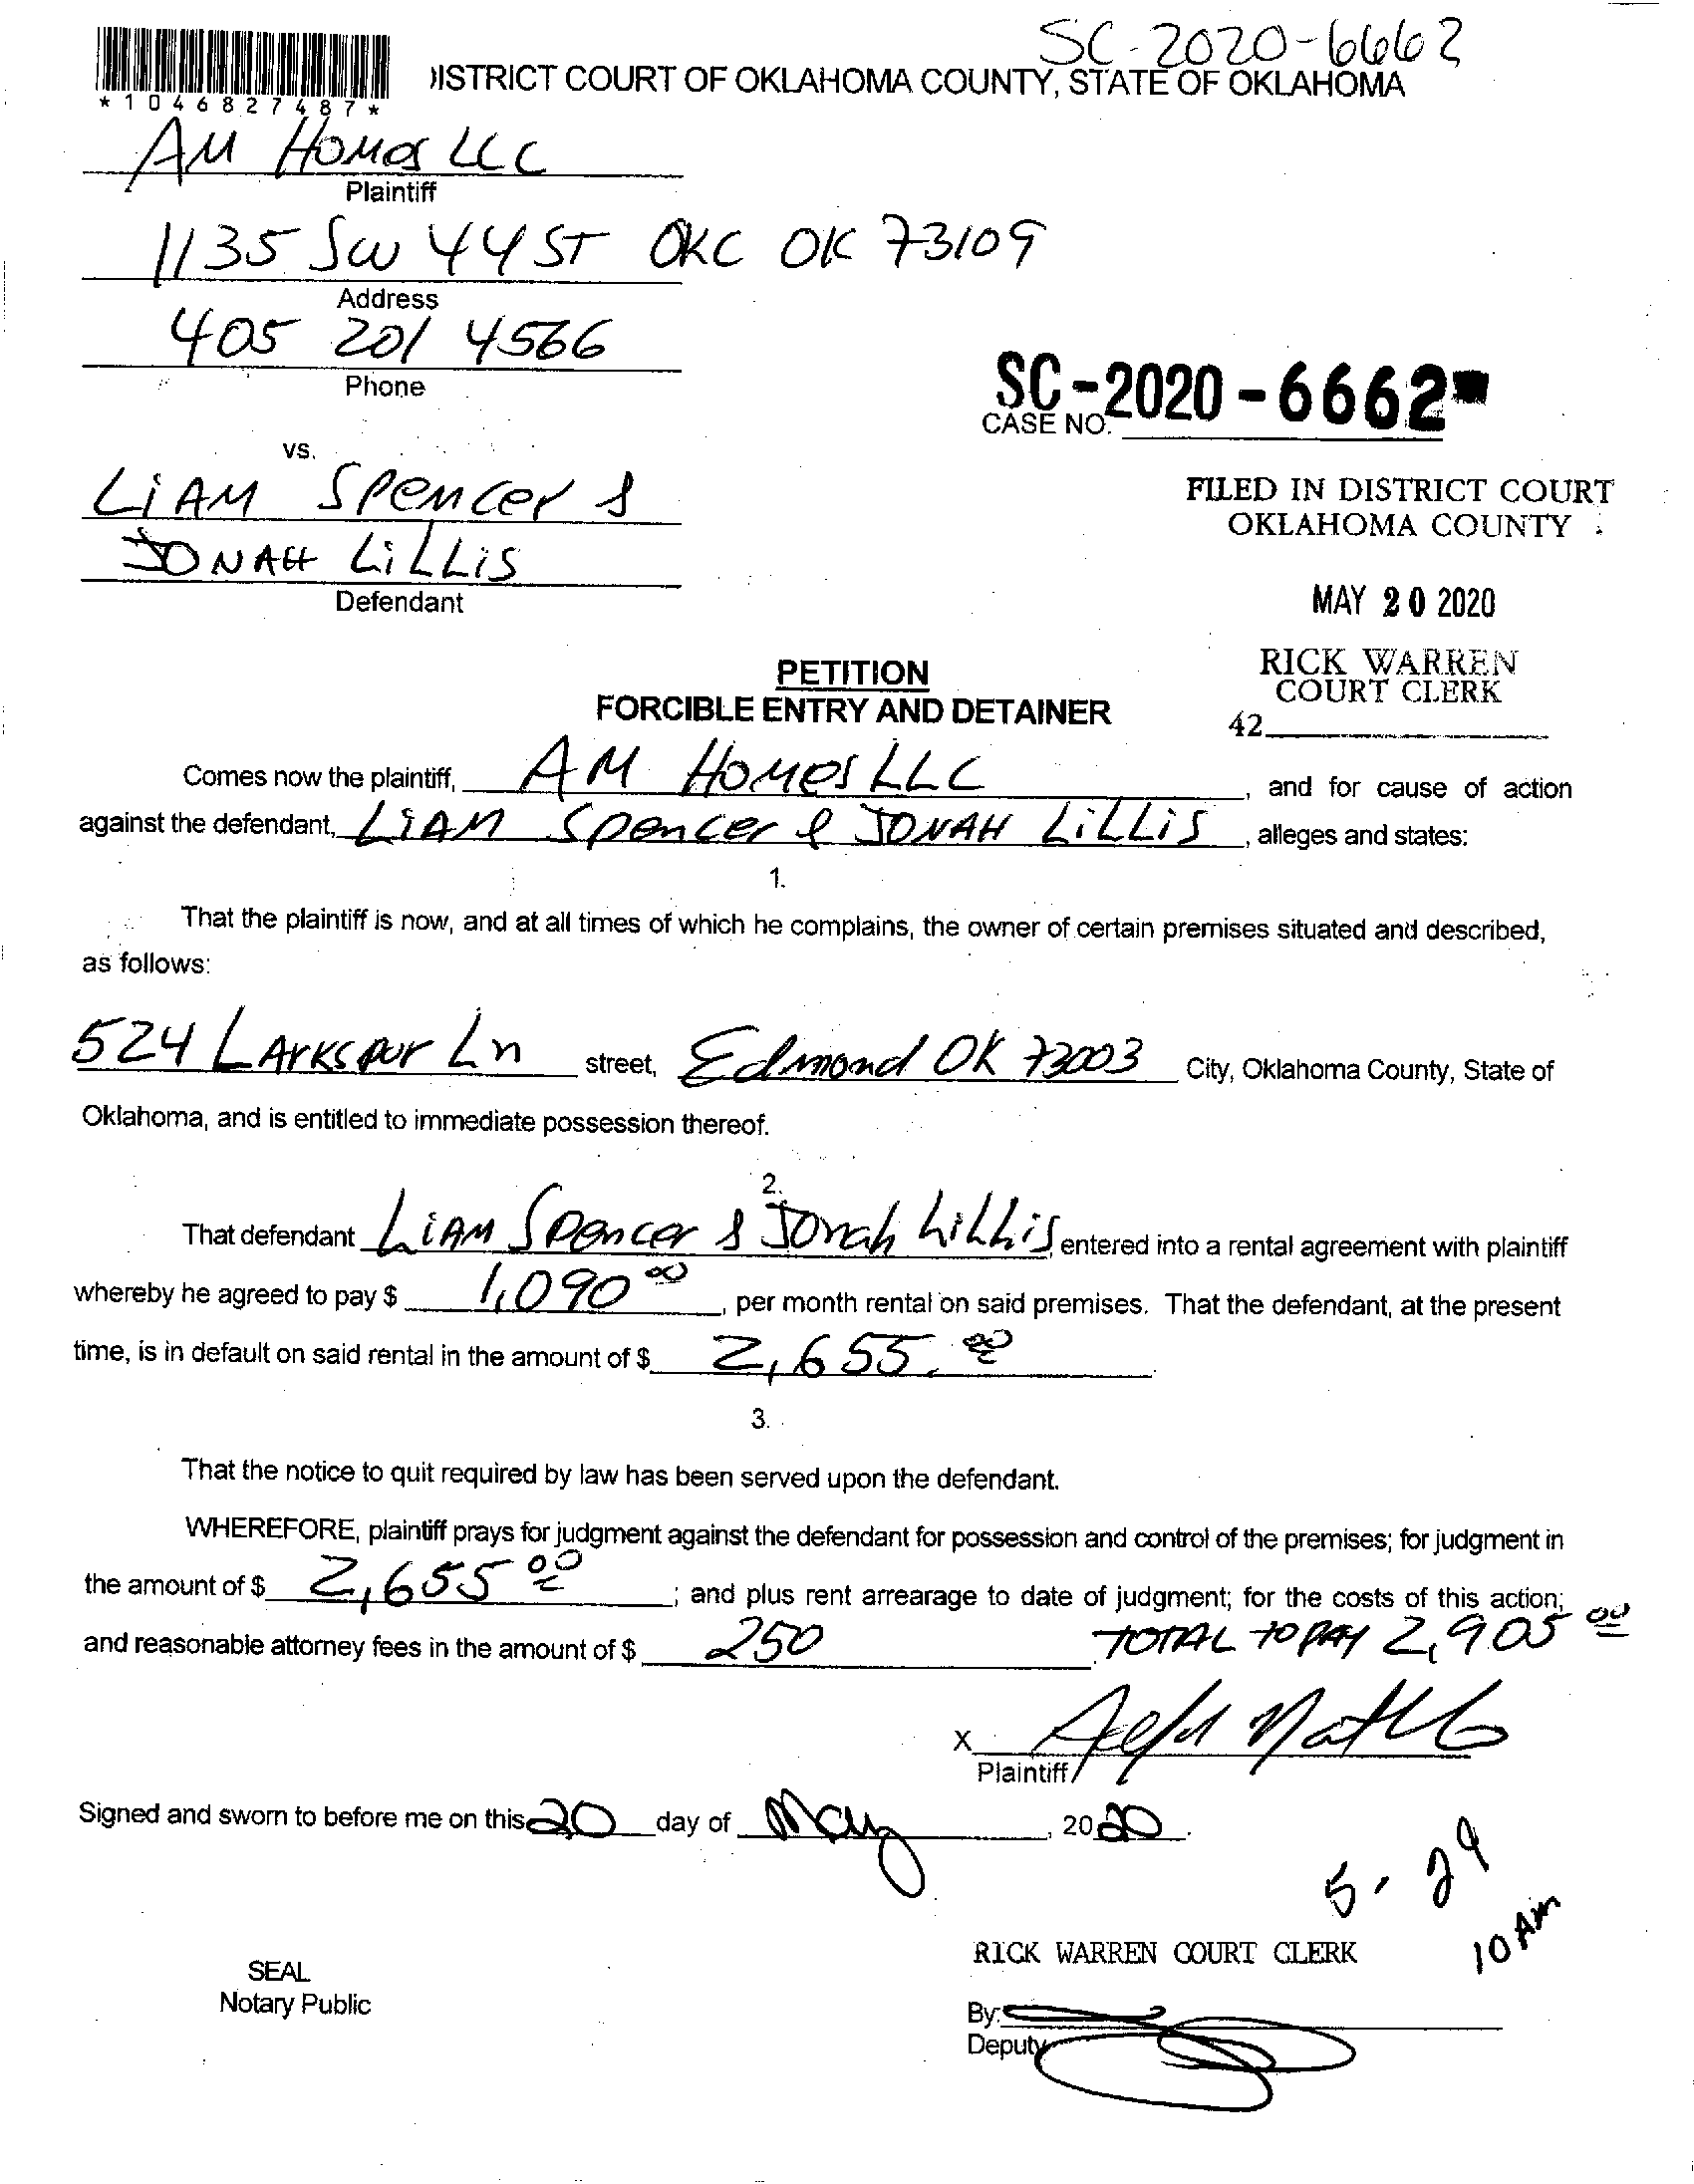 SC-2020-6662
DISTRICT COURT OF OKLAHOMA COUNTY, STATE OF OKLAHOMA
*1046827487*
AM Homes LLC
Plaintiff
1135 SW 44 ST OKC OK 73109
Address
405 201 4566
Phone
SC-2020-6662
CASE NO.
vs.
LiAM Spencer &
JONAH LiLLiS
Defendant
FILED IN DISTRICT COURT
OKLAHOMA COUNTY
MAY 20 2020
RICK WARREN
COURT CLERK
42
PETITION
FORCIBLE ENTRY AND DETAINER
Comes now the plaintiff, AM Homes LLC, and for cause of action
against the defendant, LiAM Spencer & JONAH LiLLiS, alleges and states:
1.
That the plaintiff is now, and at all times of which he complains, the owner of certain premises situated and described,
as follows:
524 LArkspur Ln street, Edmond OK 73003 City, Oklahoma County, State of
Oklahoma, and is entitled to immediate possession thereof.
2.
That defendant LiAM Spencer & Jonah LiLLiS, entered into a rental agreement with plaintiff
whereby he agreed to pay $ 1,090 00, per month rental on said premises. That the defendant, at the present
time, is in default on said rental in the amount of $ 2,655.00.
3.
That the notice to quit required by law has been served upon the defendant.
WHEREFORE, plaintiff prays for judgment against the defendant for possession and control of the premises; for judgment in
the amount of $ 2,655 00; and plus rent arrearage to date of judgment; for the costs of this action;
and reasonable attorney fees in the amount of $ 250. TOTAL TO PAY 2,905 00
X
Plaintiff
Signed and sworn to before me on this 20 day of May, 2020.
5. 29
10 AM
RICK WARREN COURT CLERK
SEAL
Notary Public
By:
Deputy